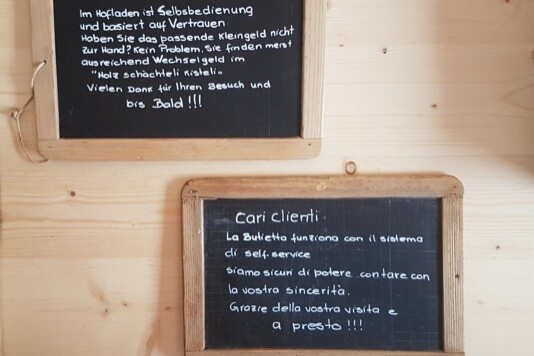 Im Hofladen ist Selbsbedienung
und basiert auf Vertrauen.
Haben Sie das passende Kleingeld nicht
zur Hand? Kein Problem, Sie finden meist
ausreichend Wechselgeld im
"Holz schächteli Kisteli"
Vielen Dank für Ihren Besuch und
bis Bald!!!
Cari clienti.
La Butietta funziona con il sistema
di self-service
siamo sicuri di potere contare con
la vostra sincerità.
Grazie della vostra visita e
a presto!!!